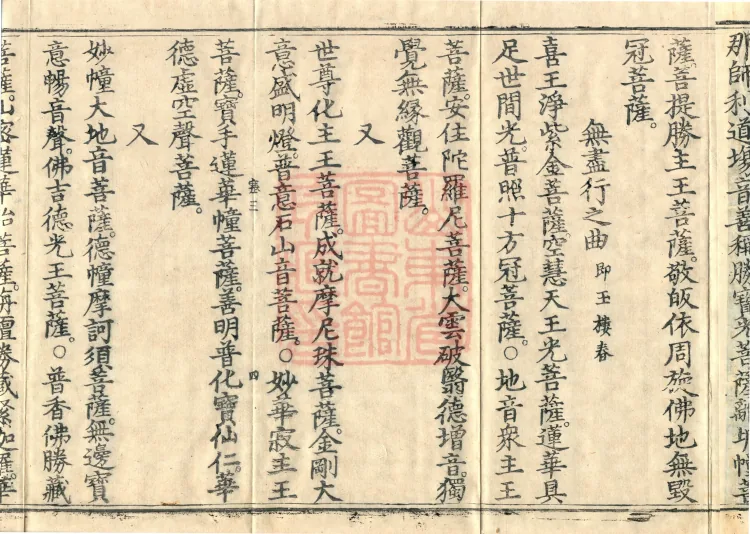 那師利道場音善種勝寶菩薩地幢菩
薩。菩提勝主王菩薩。敬皈依周旋佛地無毀
冠菩薩。
無盡行之曲 即玉樓春
喜王淨紫金菩薩。空慧天王光菩薩。蓮華具
足世間光。普照十方冠菩薩。○地音衆主王
菩薩。安住陀羅尼菩薩。大雲破翳德增音。獨
覺無緣觀菩薩。
又
世尊化主王菩薩。成就摩尼珠菩薩。金剛大
意盛明燈。普意石山音菩薩。○妙華寂主王
塞三 四
菩薩。寶手蓮華幢菩薩。善明普化寶仙仁。華
德虛空聲菩薩。
又
妙幢大地音菩薩。德幢摩訶須菩薩。無邊寶
意暢音聲。佛吉德。光王菩薩。○普香佛勝藏
菩薩。山蓮華菩薩。勝藏華
山東省
圖書館